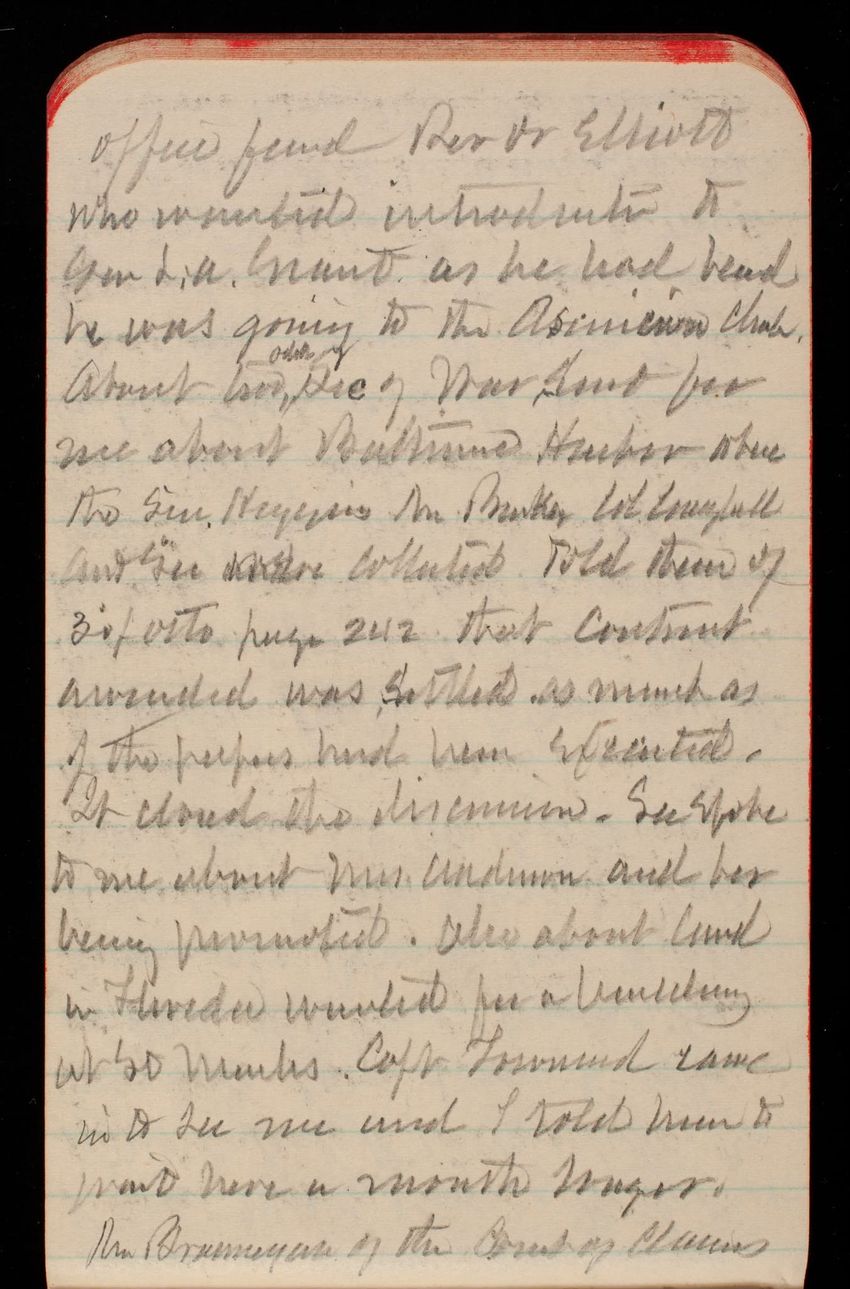 office found Rev Dr Elliott
who wanted introduction to
Gen L. A. Grant as he had heard
he was going to the Club.
About Sec of War sent for
me about Baltimore Harbor where
the Sen. Higgins Mr
and collected Told them of
3 of page 242 that Contract
awarded was settled as much as
if the papers had been Executed.
It closed the discussion. Sec Spoke
to me about Mrs. and her
being promoted. Also about land
in Florida wanted for a
at St Marks. Capt Townsend came
in to see me and I told him to
here a month longer.
Mr of the Court of Claims